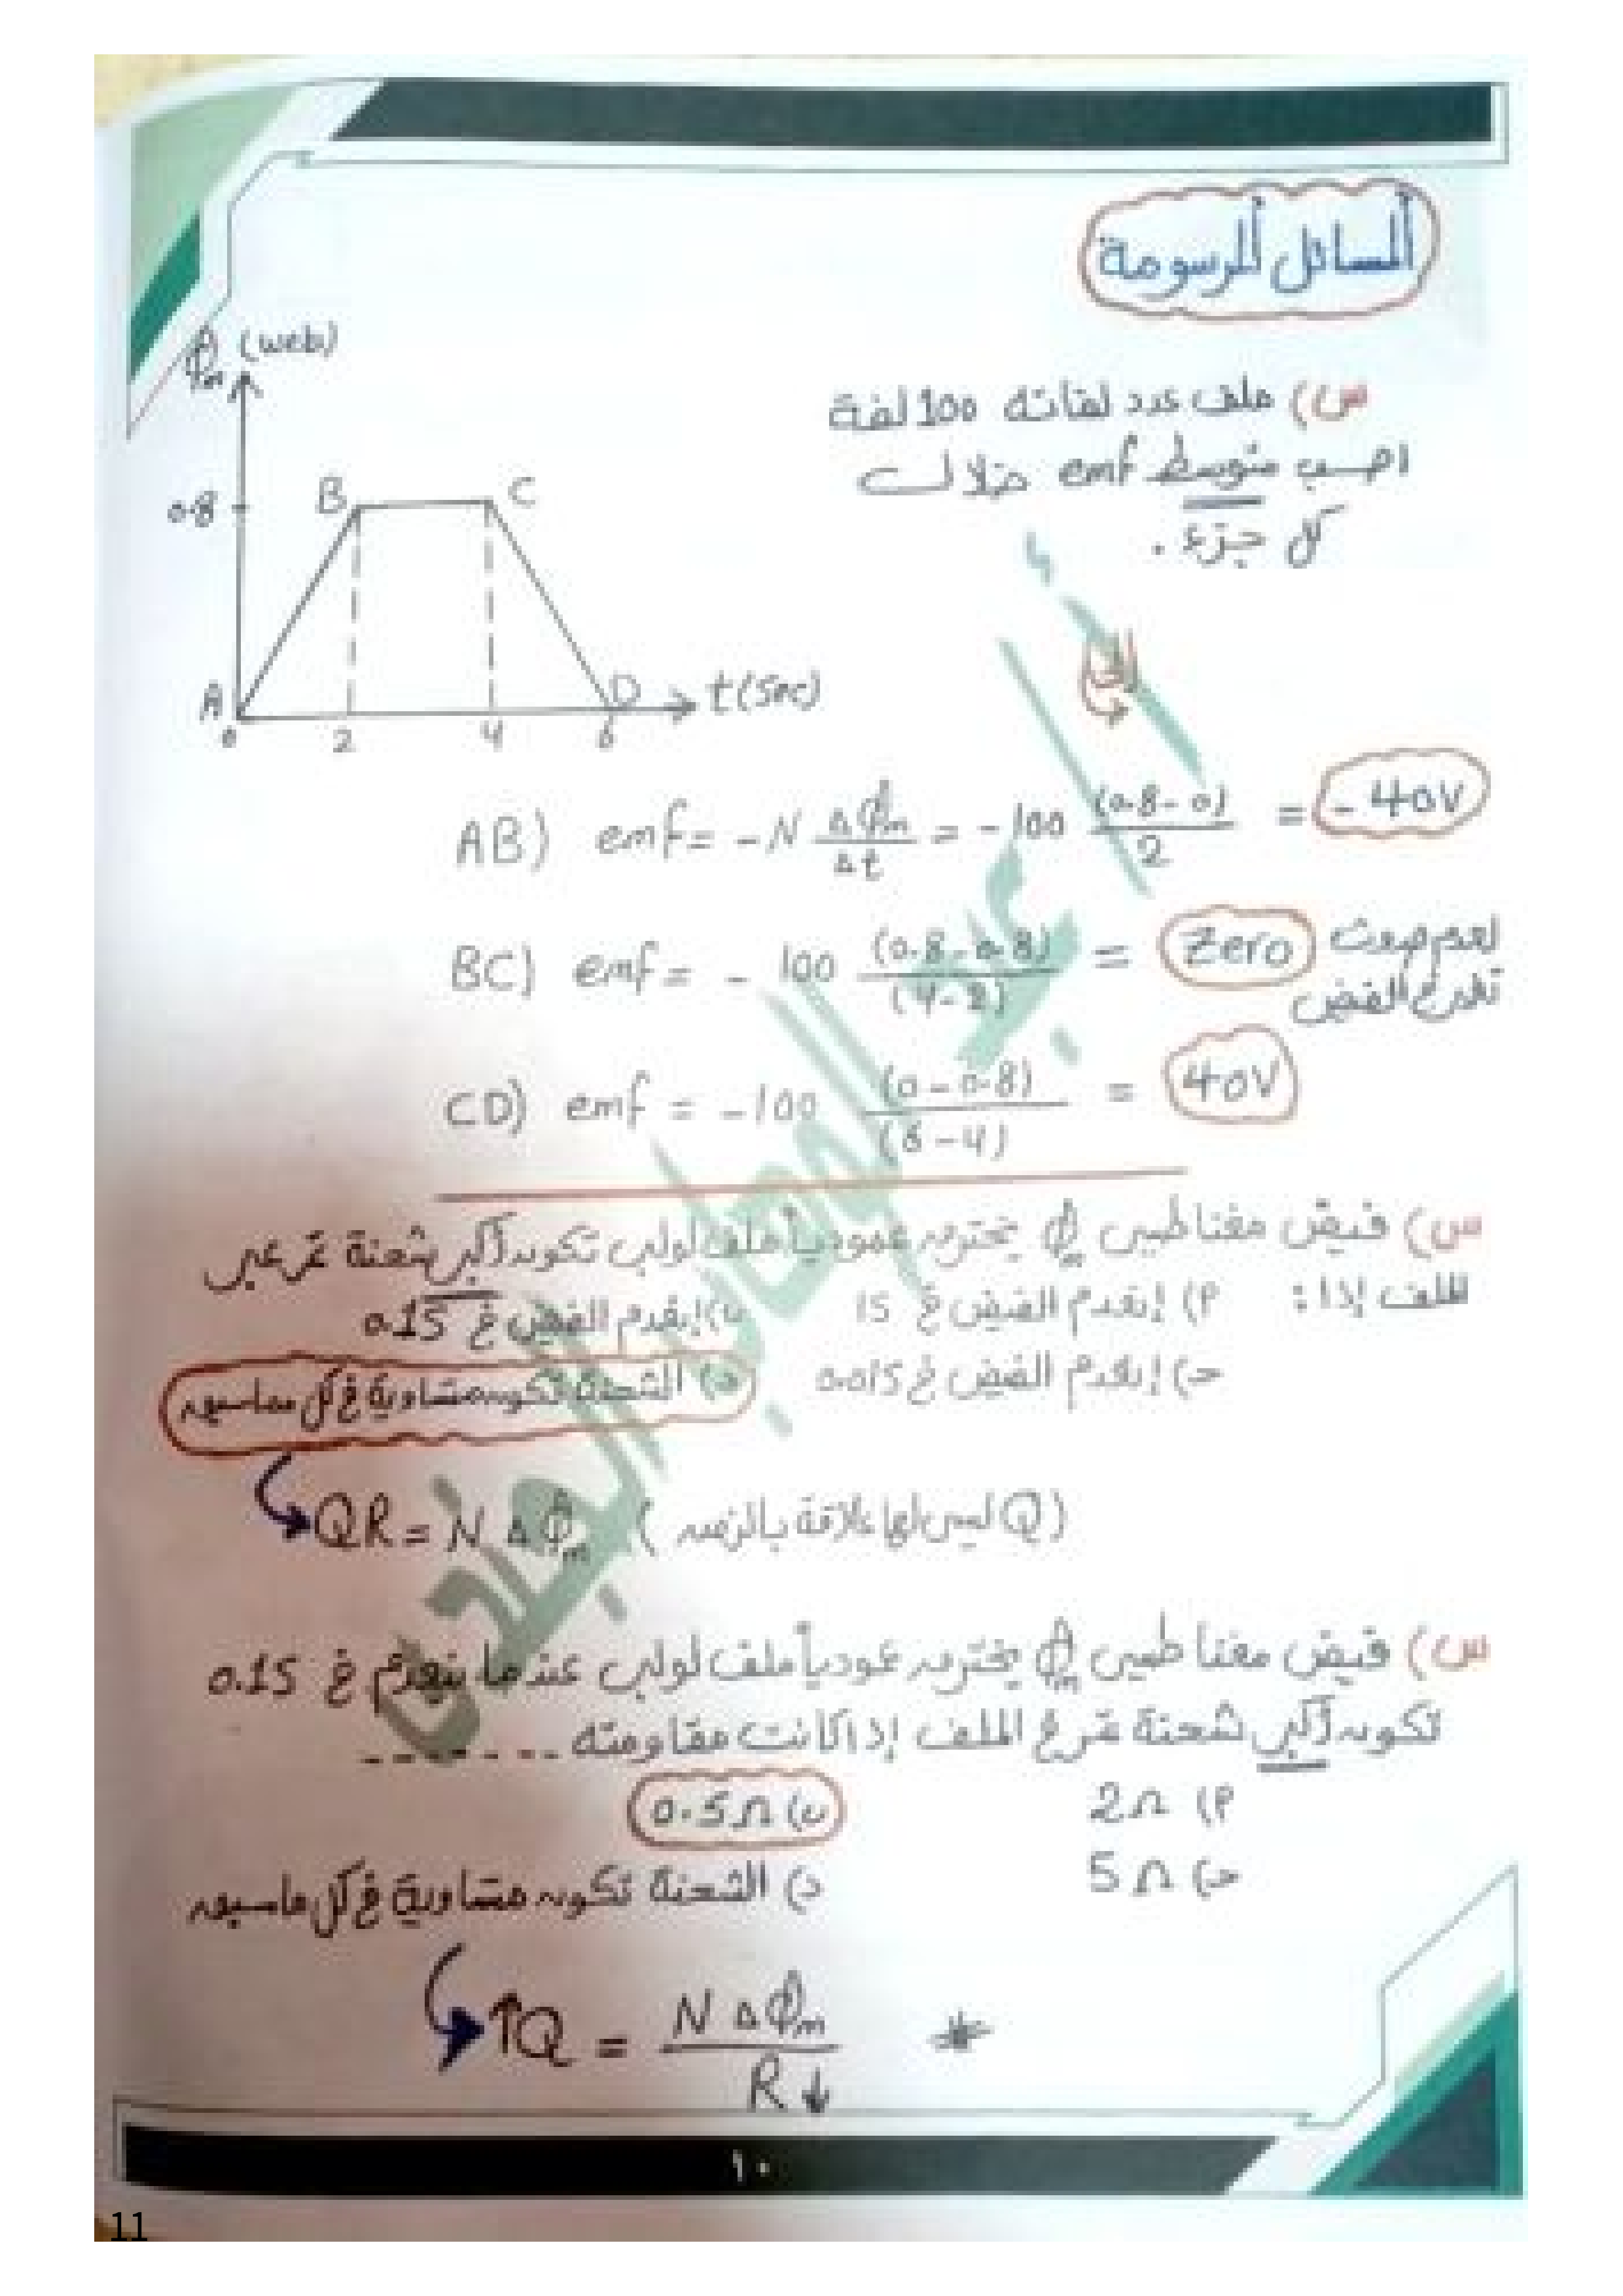 المسائل المرسومة
س) ملف عدد لفاته 100 لفة
احسب متوسط emf خلال
كل جزء .
Φm (web)
0.8
B
C
A
D
t(sec)
0 2 4 6
AB) emf = -N ΔΦm/Δt = -100 (0.8-0)/2 = -40V
BC) emf = - 100 (0.8-0.8)/(4-2) = Zero لعدم حدوث
تغير في الفيض
CD) emf = -100 (0-0.8)/(6-4) = 40V
س) فيض مغناطيسي Φm يخترق عمودياً ملف لولبي تكون أكبر شحنة تمر عبر
الملف إذا : أ) إنعدم الفيض في 1s ب) إنعدم الفيض في 0.1s
حـ) إنعدم الفيض في 0.01s د) الشحنة تكون متساوية في كل مما سبق
QR = N ΔΦm (Q ليس لها علاقة بالزمن)
س) فيض مغناطيسي Φm يخترق عمودياً ملف لولبي عندما ينعدم في 0.1s
تكون أكبر شحنة تمر في الملف إذا كانت مقاومته -------
أ) 2Ω ب) 0.5Ω
حـ) 5Ω د) الشحنة تكون متساوية في كل ما سبق
↑Q = N ΔΦm / R↓ #
عبد الرحمن
١٠
11